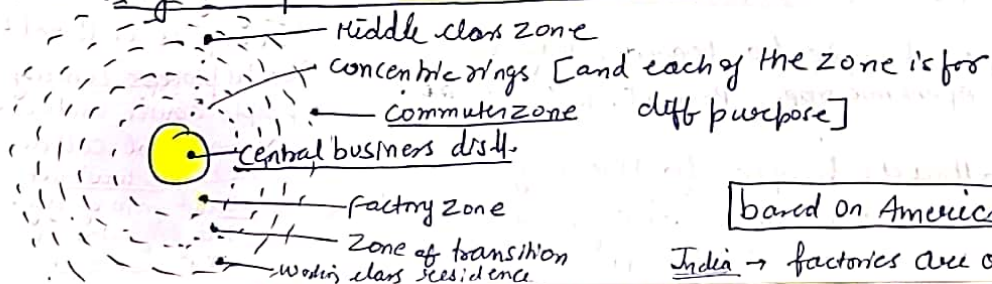 Middle class zone
concentric rings [and each of the zone is for
diff purpose]
commuter zone
central business dist.
factory zone
zone of transition
working class residence
based on Americ
India → factories are o